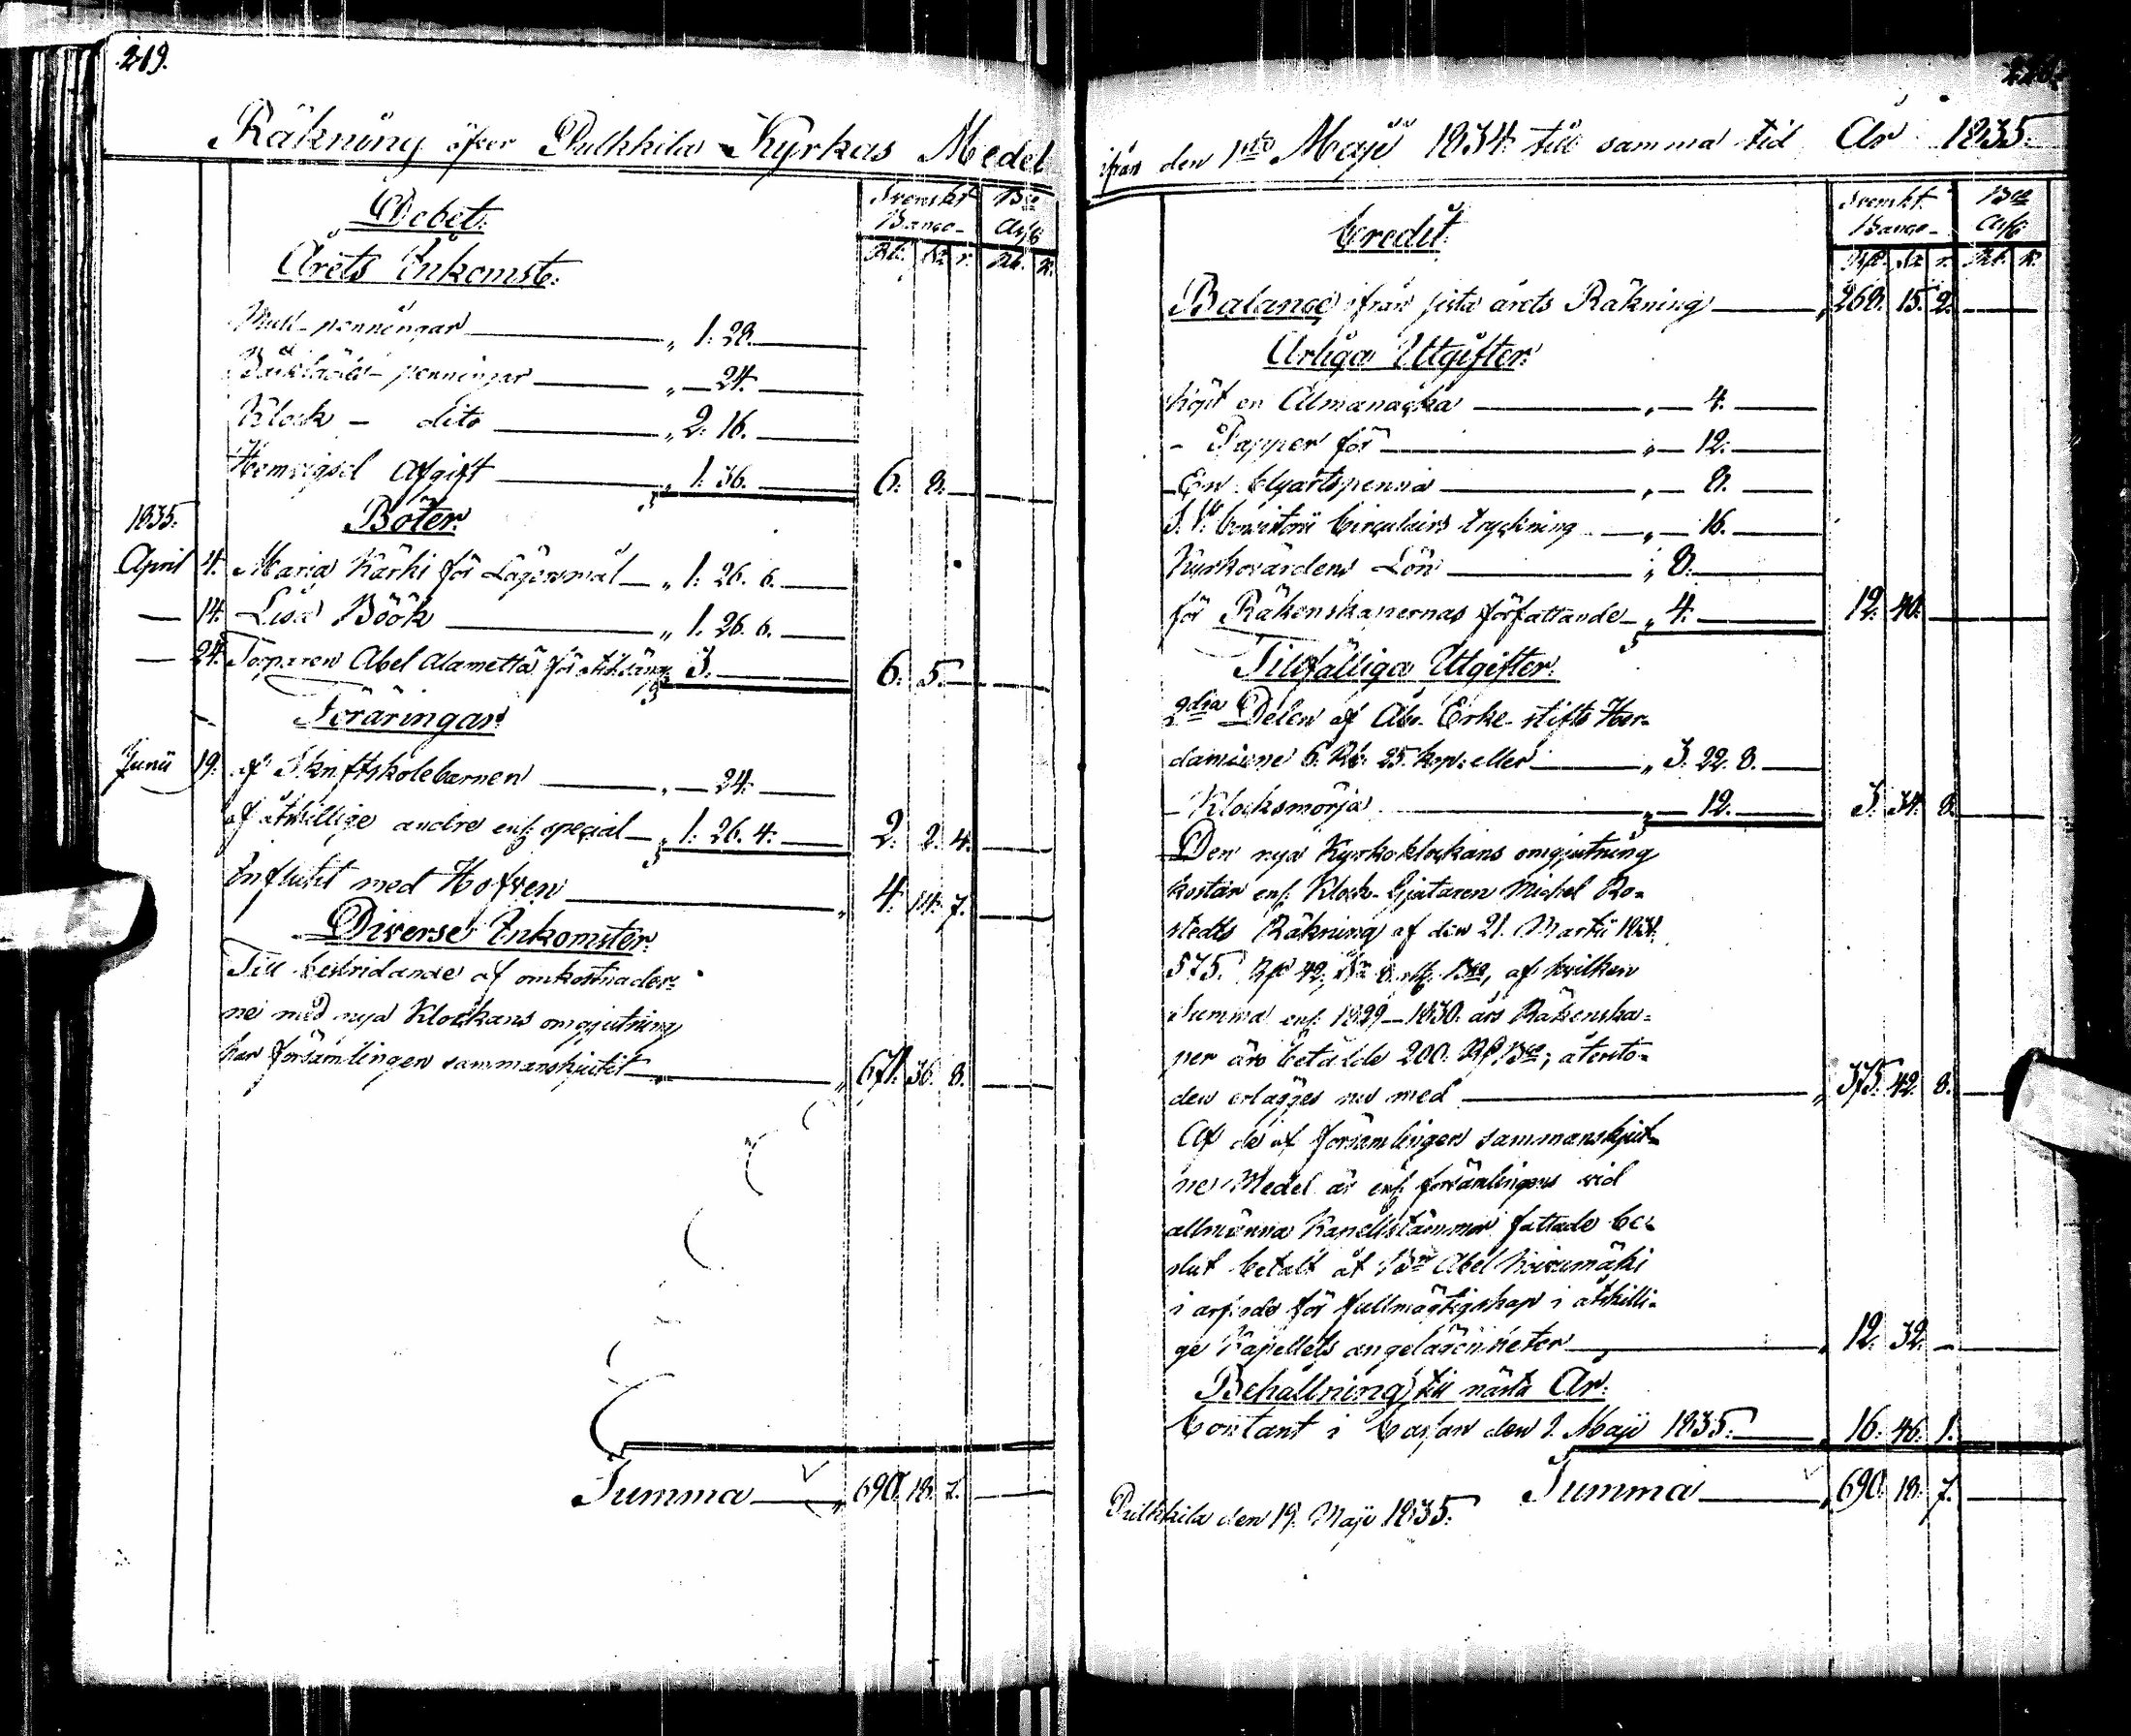 219.
Räkning öfver Pulkkila Kyrkas Medel
Debet. Svenskt Banco Bco Ass.
Årets Inkomst. Rd. sk. r. Rb. k.
Mull-penningar " 1. 28.
Bårklädes-penningar " — 24.
Klock - dito " 2. 16.
Hemvigsel Afgift " 1. 36. 6. 8.
1835. Böter.
April 4. Maria Kärki för Lägersmål " 1. 26. 6.
— 14. Lisa Böök " 1. 26. 6.
— 24. Torparen Abel Alametta för 3. 6. 5.
Föräringar.
Junii 19. af Skriftskolebarnen " — 24.
af åtskillige andre enl. special " 1. 26. 4. 2. 2. 4.
Influtit med Hofven " 4. 14. 7.
Diverse Inkomster.
Till bestridande af omkostnader-
ne med nya Klockans omgjutning
har församlingen sammanskjutit " 671. 36. 8.
Summa " 690. 18. 7.
220.
ifrån den 1sta Maji 1834 till samma tid År 1835.
Credit. Svenskt Banco Bco Ass.
Rd. sk. r. Rb. k.
Balance ifrån sista årets Räkning " 268. 15. 2.
Årliga Utgifter.
Köpt en Almanacka " — 4.
- Papper för " — 12.
En Qvartspenna " — 8.
Circulairs tryckning " — 16.
Kyrkovärdens Lön " 8.
för Räkenskapernas författande " 4. 12. 40.
Tillfälliga Utgifter.
2dra Delen af Åbo Erke-stifts Her-
daminne 6. Rb. 25. kop. eller " 3. 22. 8.
- Klocksmörja " — 12. 3. 34. 8.
Den nya Kyrkoklockans omgjutning
kostar enl. Klock-Gjutaren Michel Ro-
stedts Räkning af den 21. Martii 1831.
575. Rd 42. sk 8. r. Bco, af hvilken
Summa enl. 1829—1830. års Räkenska-
per äro betalde 200. Rd Bco; återsto-
den erlägges nu med " 375. 42. 8.
Af de af församlingen sammanskjut-
ne Medel är enl. församlingens vid
allmänna Kapellstämmor fattade be-
slut betalt åt Bn Abel Koivumäki
i arfvode för fullmägtigskap i åtskilli-
ge Kapellets angelägenheter " 12. 32. —
Behållning till nästa År.
Contant i Cassan den 1. Maji 1835. " 16. 46. 1.
Summa " 690. 18. 7.
Pulkkila den 19. Maji 1835.